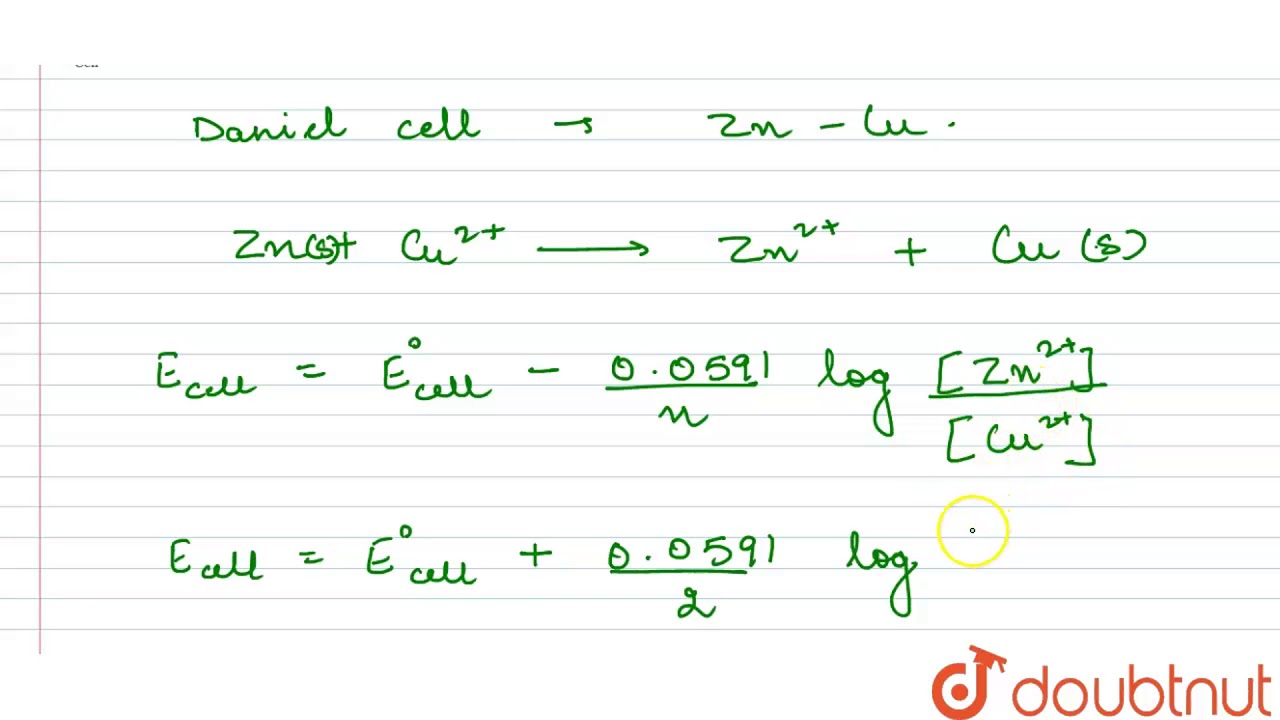 Daniel cell → Zn - Cu.
Zn(s)+ Cu²⁺ ⟶ Zn²⁺ + Cu (s)
E cell = E° cell - 0.0591/n log [Zn²⁺]/[Cu²⁺]
E cell = E° cell + 0.0591/2 log
doubtnut